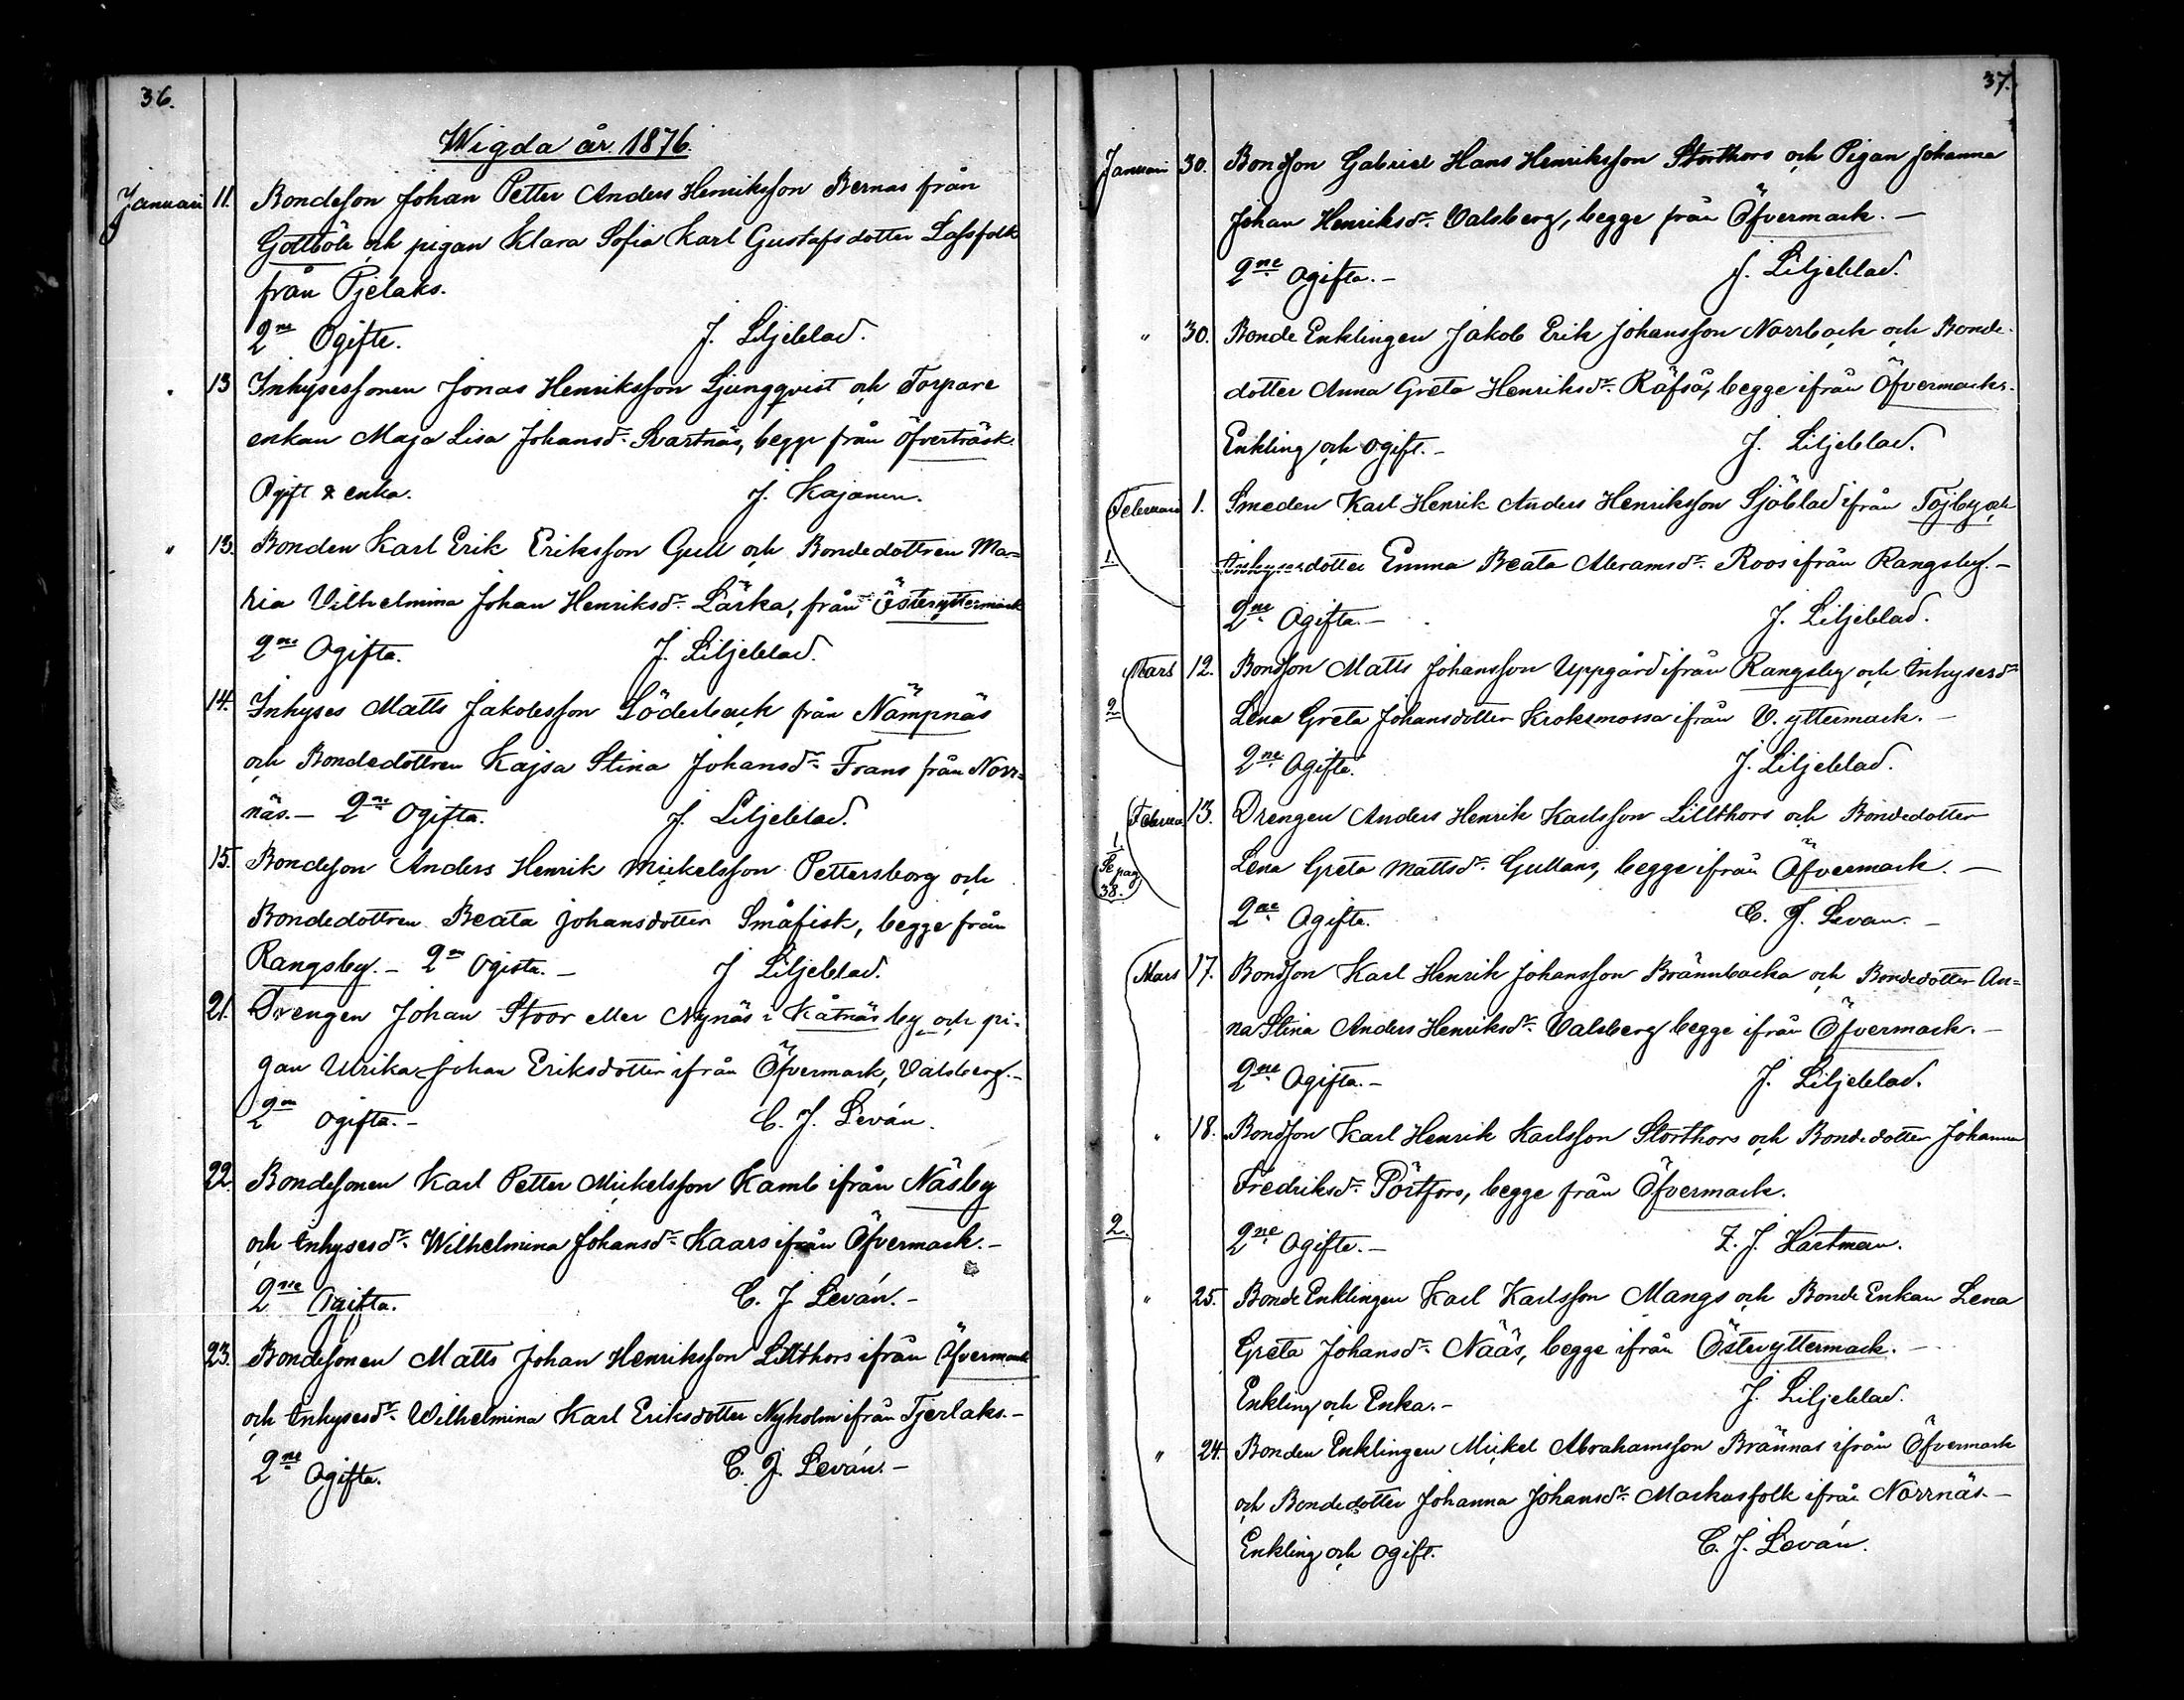 36.
Wigda år 1876.
Januari 11. Bondeson Johan Petter Anders Henriksson Bernas från
Gottböle och pigan Klara Sofia Karl Gustafsdotter Lassfolk
från Pjelaks.
2ne Ogifte. J. Liljeblad.
" 13 Inhysessonen Jonas Henriksson Ljungqvist och Torpare
enkan Maja Lisa Johansdr Svartnäs, begge från Öfverträsk.
Ogift & enka. J. Kajanen.
" 13. Bonden Karl Erik Eriksson Gull och Bondedottren Ma=
ria Vilhelmina Johan Henriksdr Lärka, från Österyttermark
2ne Ogifta. J. Liljeblad.
14. Inhyses Matts Jakobsson Söderback från Nämpnäs
och Bondedottren Kajsa Stina Johansdr Frans från Norr=
näs.— 2ne Ogifta. J. Liljeblad.
15. Bondeson Anders Henrik Mickelsson Pettersborg och
Bondedottren Beata Johansdotter Småfisk, begge från
Rangsby.— 2ne Ogista.— J Liljeblad.
21. Drengen Johan Stoor eller Nynäs i Kåtnäs by och pi-
gan Ulrika Johan Eriksdotter ifrån Öfvermark, Valsberg.—
2ne Ogifta.— C. J. Leván.
22. Bondesonen Karl Petter Mickelsson Kamb ifrån Näsby
och Inhysesdr Wilhelmina Johansdr Kaars ifrån Öfvermark.—
2ne Ogifta. C. J Leván.—
23. Bondesonen Matts Johan Henriksson Lillthors ifrån Öfvermark
och Inhysesdr Wilhelmina Karl Eriksdotter Nyholm ifrån Tjerlaks.—
2ne Ogifta. C. J. Leván.—
37.
Januari 30. Bondson Gabriel Hans Henriksson Storthors och Pigan Johanna
Johan Henriksdr Valsberg, begge från Öfvermark.—
2ne Ogifta.— J. Liljeblad.
" 30. Bonde Enklingen Jakob Erik Johansson Norrback och Bonde-
dotter Anna Greta Henriksdr Räfså, begge ifrån Öfvermark.
Enkling och Ogift.— J. Liljeblad.
Februari 1. Smeden Karl Henrik Anders Henriksson Sjöblad ifrån Töjby och
1. Inhysesdotter Emma Beata Abramsdr Roos ifrån Rangsby.—
2ne Ogifta.— J. Liljeblad.
Mars 12. Bondson Matts Johansson Uppgård ifrån Rangsby och Inhysesdr
2 Lena Greta Johansdotter Kroksmossa ifrån V. yttermark.—
2ne Ogifta. J. Liljeblad.
Februa 13. Drengen Anders Henrik Karlsson Lillthors och Bondedotter
1. Se pag 38. Lena Greta Mattsdr Gullans, begge ifrån Öfvermark.—
2ne Ogifta. C. J. Levan.—
Mars 17. Bondson Karl Henrik Johansson Brännbacka och Bondedotter An=
na Stina Anders Henriksdr Valsberg begge ifrån Öfvermark.—
2ne Ogifta.— J. Liljeblad.
" 18. Bondson Karl Henrik Karlsson Storthors och Bondedotter Johanna
Fredriksdr Pörtfors, begge från Öfvermark.
2. 2ne Ogifte.— Z. J. Hartman.
" 25. Bonde Enklingen Karl Karlsson Mangs och Bonde Enkan Lena
Greta Johansdr Nääs, begge ifrån Österyttermark.—
Enkling och Enka.— J. Liljeblad.
" 24. Bonden Enklingen Mickel Abrahamsson Brännas ifrån Öfvermark
och Bondedotter Johanna Johansdr Markusfolk ifrån Norrnäs.—
Enkling och Ogift. C. J. Leván.